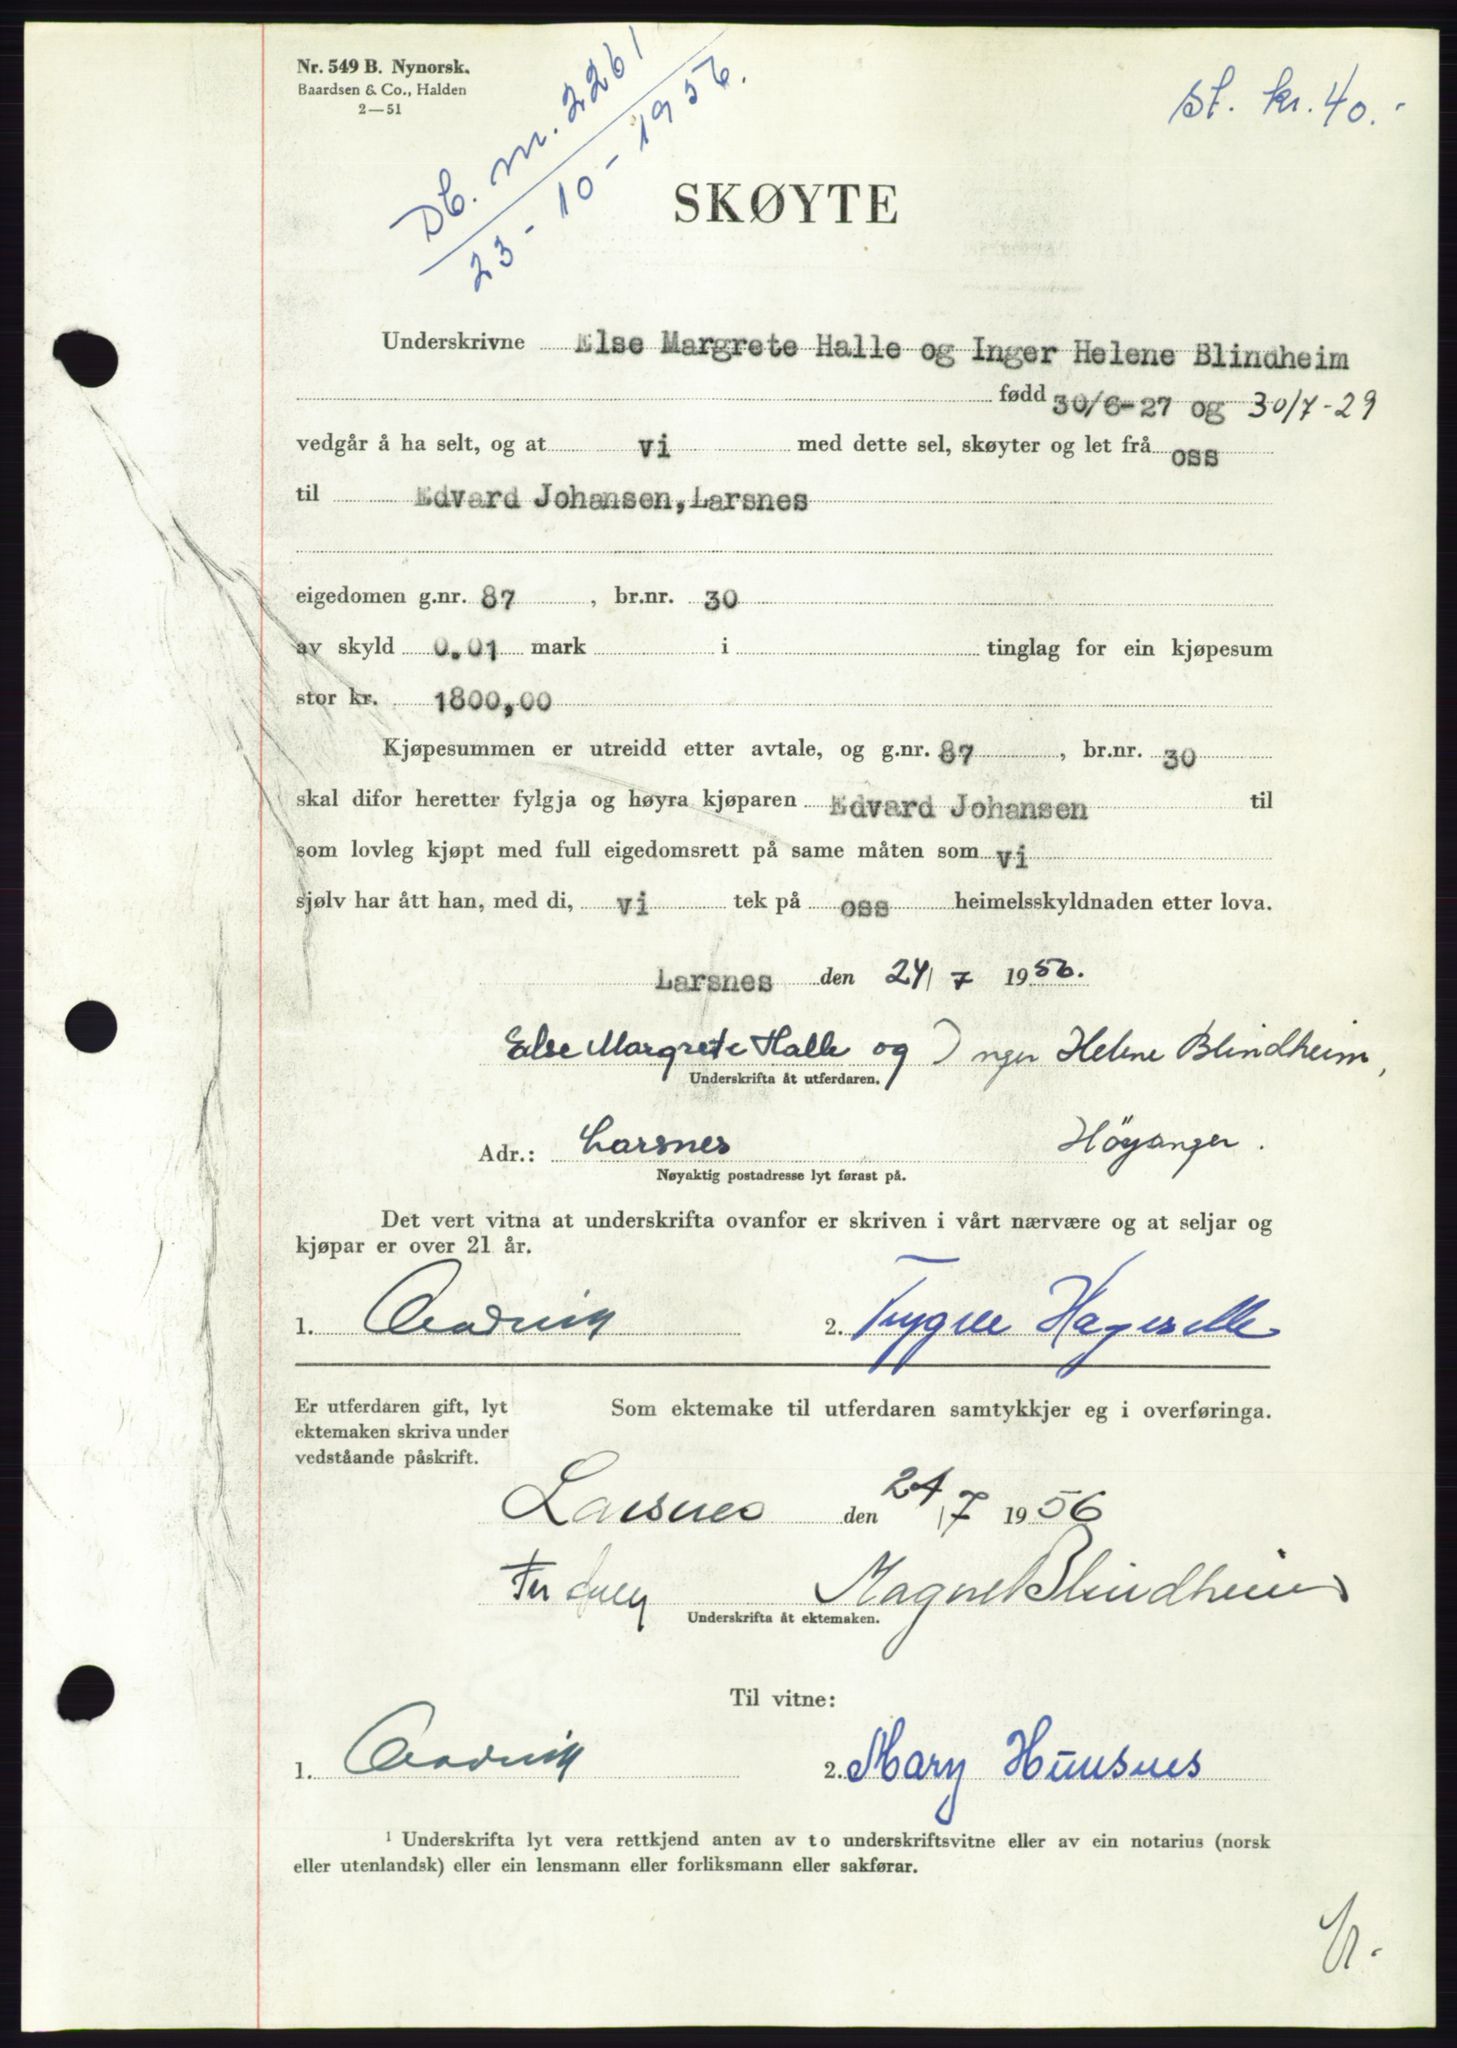 Nr. 549 B. Nynorsk.
Baardsen & Co., Halden
2—51
Db. nr. 2261
23-10-1956.
st. kr. 40.-
SKØYTE
Underskrivne Else Margrete Halle og Inger Helene Blindheim
fødd 30/6-27 og 30/7-29
vedgår å ha selt, og at vi med dette sel, skøyter og let frå oss
til Edvard Johansen, Larsnes
eigedomen g.nr. 87, br.nr. 30
av skyld 0.01 mark i tinglag for ein kjøpesum
stor kr. 1800,00
Kjøpesummen er utreidd etter avtale, og g.nr. 87, br.nr. 30
skal difor heretter fylgja og høyra kjøparen Edvard Johansen til
som lovleg kjøpt med full eigedomsrett på same måten som vi
sjølv har ått han, med di, vi tek på oss heimelsskyldnaden etter lova.
Larsnes den 24/7 1956.
Else Margrete Halle og Inger Helene Blindheim,
Underskrifta åt utferdaren.
Adr.: Larsnes Höyanger.
Nøyaktig postadresse lyt førast på.
Det vert vitna at underskrifta ovanfor er skriven i vårt nærvære og at seljar og
kjøpar er over 21 år.
1. 2. Trygve
Er utferdaren gift, lyt
ektemaken skriva under
vedståande påskrift.
Som ektemake til utferdaren samtykkjer eg i overføringa.
Larsnes den 24/7 1956
Magne Blindheim
Underskrifta åt ektemaken.
Til vitne:
1. 2. Mary Huusnes
¹ Underskrifta lyt vera rettkjend anten av to underskriftsvitne eller av ein notarius (norsk
eller utenlandsk) eller ein lensmann eller forliksmann eller sakførar.